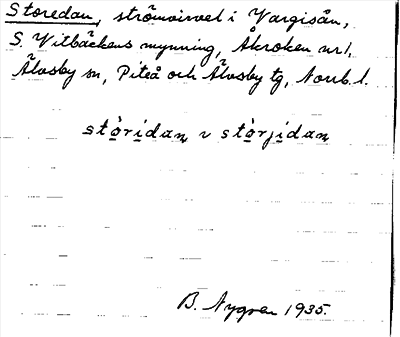 Storedan, strömvirvel i Vargisån,
S. Vitbäckens mynning, Åkroken nr 1,
Älvsby sn, Piteå och Älvsby tg, Norrb. l.
stòridan v stòrjidan
B. Nygren 1935.